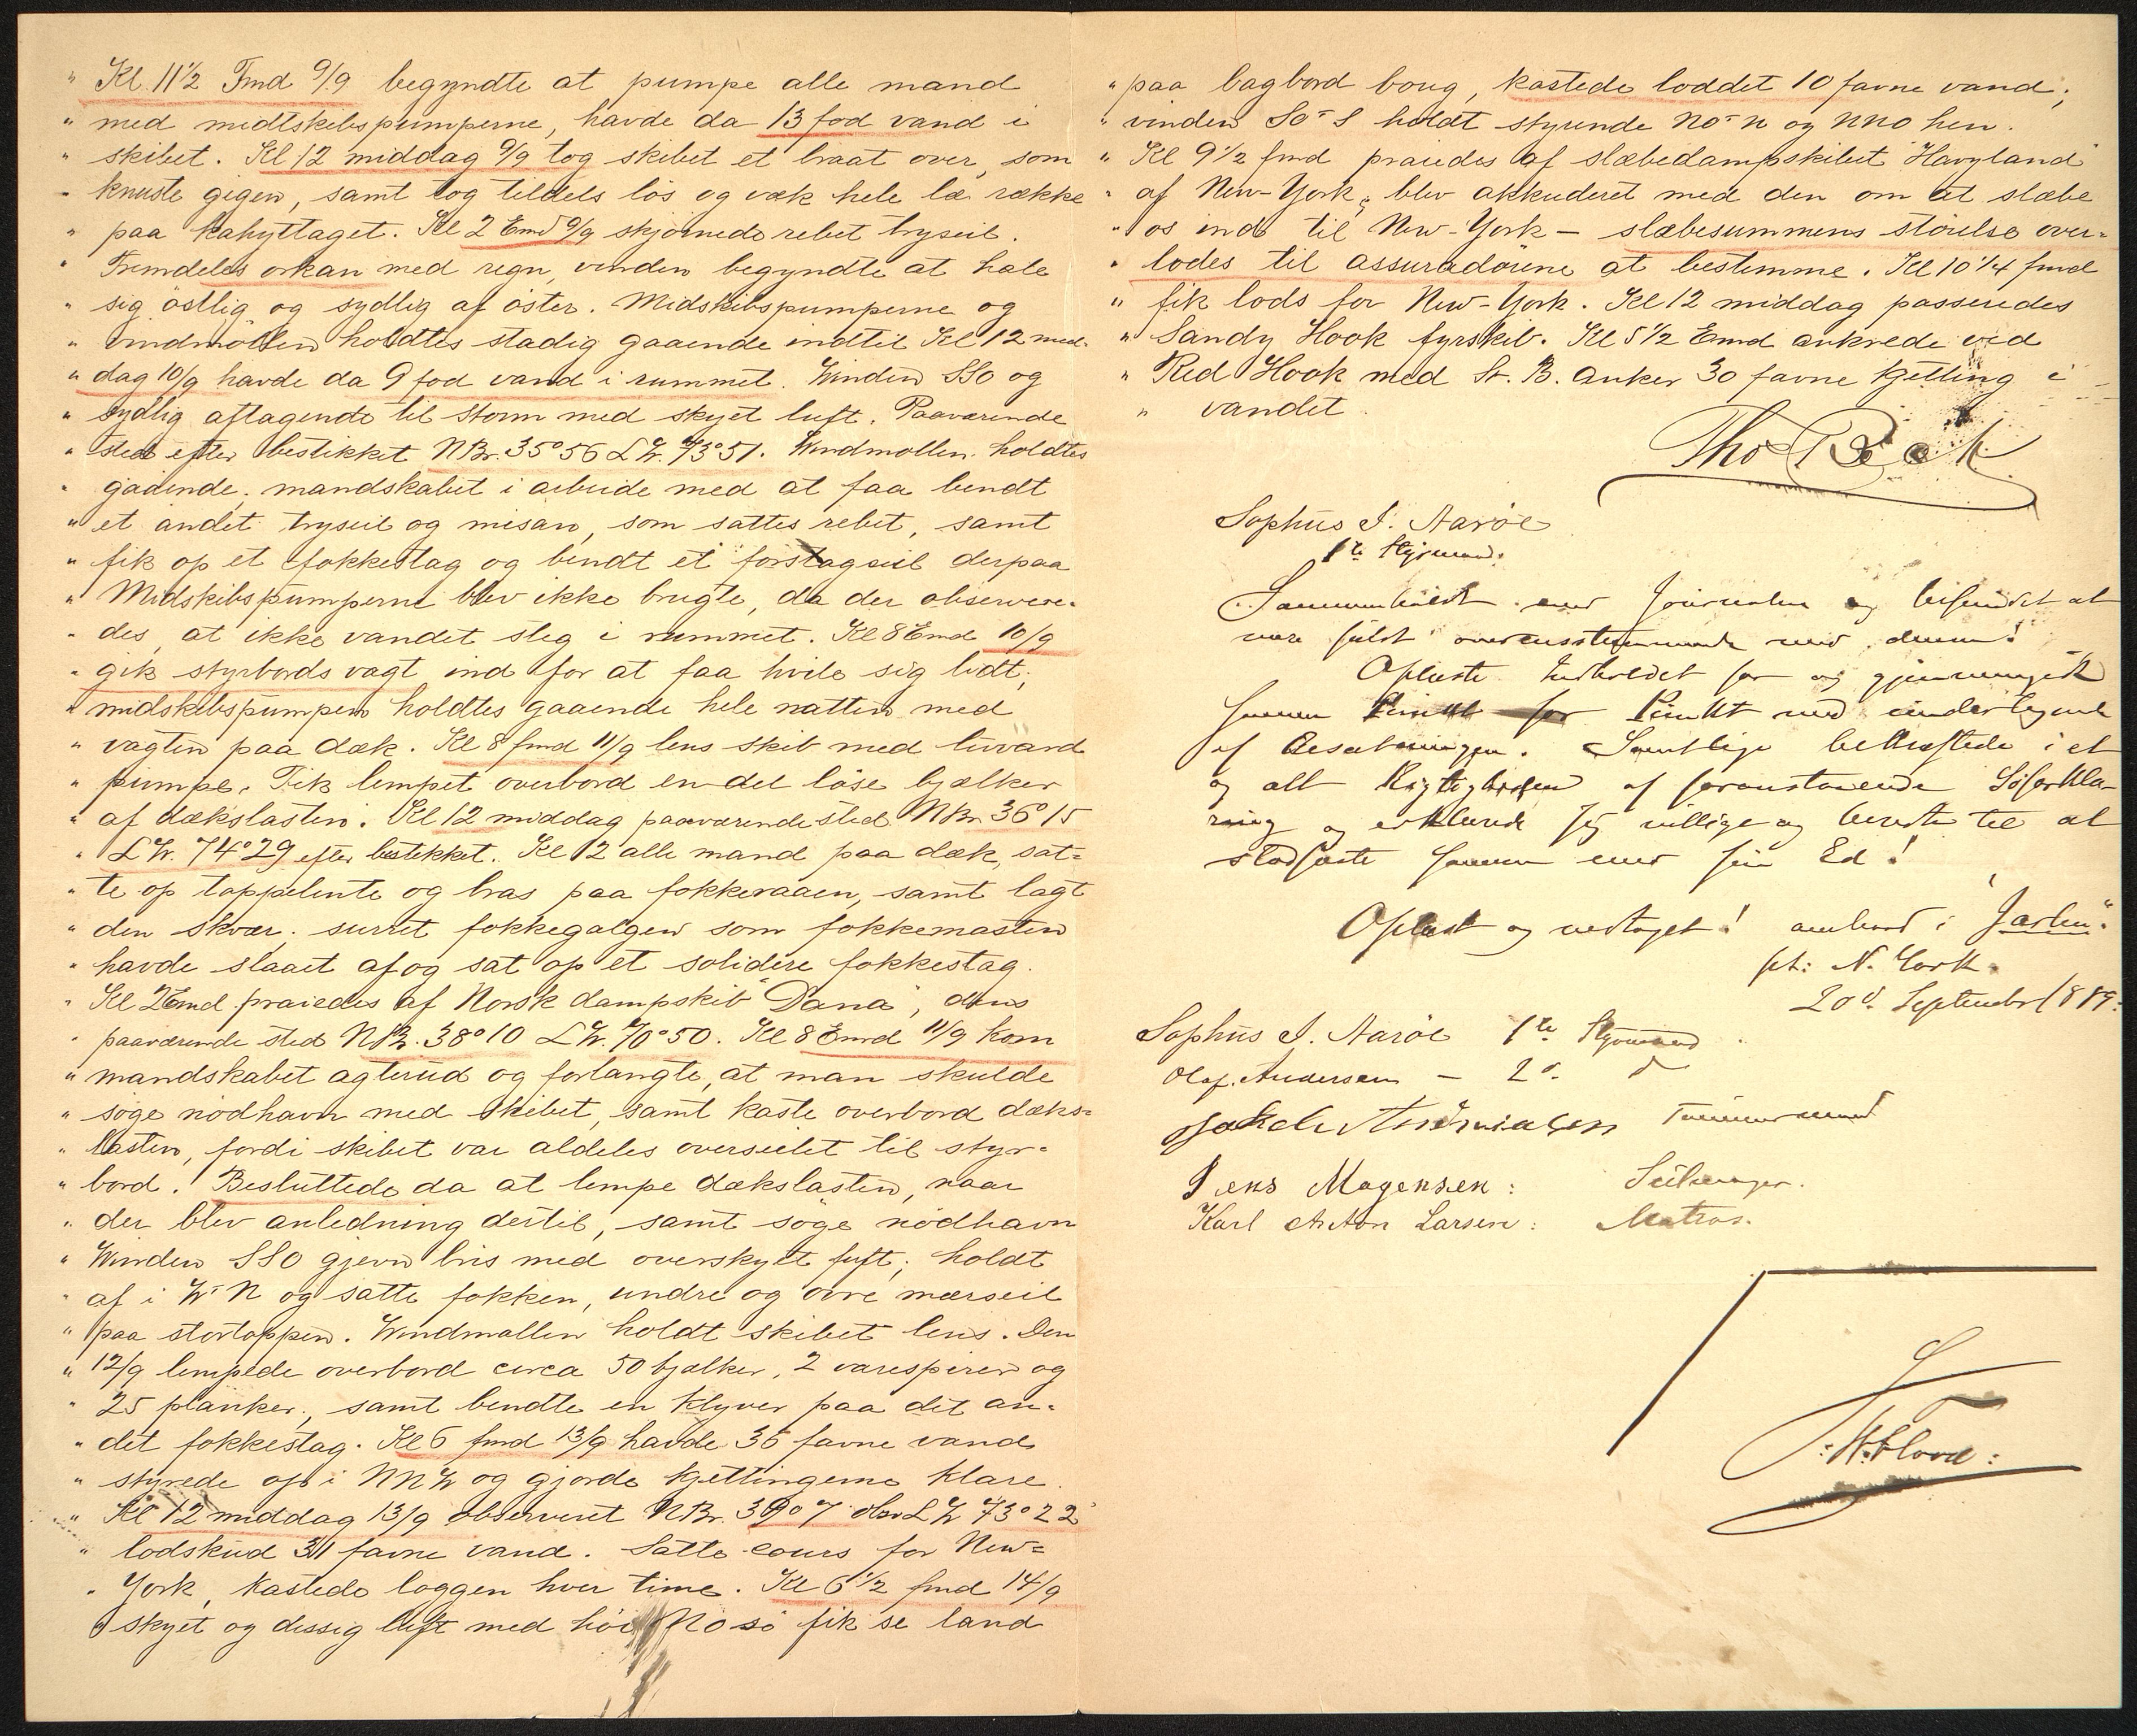 " Kl. 11 1/2 Fmd 9/9 begyndte at pumpe alle mand
" med midtskibspumperne, havde da 13 fod vand i
" skibet. Kl 12 middag 9/9 tog skibet et braat over, som
" knuste gigen, samt tog tildels lös og væk hele læ række
" paa kahyttaget. Kl 2 Emd 9/9 skjörnede rebet tryseil.
" Fremdeles orkan med regn, vinden begyndte at hale
" sig östlig og sydlig af öster. Midskibspumperne og
" vindmöllen holdtes stadig gaaende indtil Kl 12 mid-
" dag 10/9 havde da 9 fod vand i rummet. Winden SSO og
" sydlig aftagende til storm med skyet luft. Paaværende
" sted efter bestikket NBr. 35°56 LW. 73°51. Windmöllen holdtes
" gaaende, mandskabet i arbeide med at faa bendt
" et andet tryseil og misan, som sattes rebet, samt
" fik op et fokkestag og bendt et forstagseil derpaa
" Midskibspumperne blev ikke brugte, da der observere-
" des, at ikke vandet steg i rummet. Kl 8 Emd 10/9
" gik styrbords vagt ind for at faa hvile sig lidt;
" midskibspumpen holdtes gaaende hele natten med
" vagten paa dæk. Kl 8 fmd 11/9 lens skib med luvard
" pumpe. Fik lempet overbord en del löse bjælker
" af dækslasten. Kl 12 middag paaværende sted NBr. 36°15
" LW. 74°29 efter bestikket. Kl 12 alle mand paa dæk, sat-
" te op toppelente og bras paa fokkeraaen, samt lagt
" den skvær, surret fokkegalgen som fokkemasten
" havde slaaet af og sat op et solidere fokkestag.
" Kl 2 Emd praiedes af Norsk dampskib "Dana", dens
" paaværende sted NBr. 38°10 LW. 70°50. Kl 8 Emd 11/9 kom
" mandskabet agterud og forlangte, at man skulde
" söge nödhavn med skibet, samt kaste overbord dæks-
" lasten, fordi skibet var aldeles overseilet til styr-
" bord. Besluttede da at lempe dækslasten, naar
" der blev anledning dertil, samt söge nödhavn
" Winden SSO gjevn bris med overskyet luft; holdt
" af i W-N og satte fokken, undre og övre mærseil
" paa stortoppen. Windmøllen holdt skibet lens. Den
" 12/9 lempede overbord circa 50 bjælker, 2 varespirer og
" 25 planker, samt bendte en klyver paa det an-
" det fokkestag. Kl 6 fmd 13/9 havde 36 favne vand
" styrede op i NNW og gjorde kjettingerne klare.
" Kl 12 middag 13/9 observeret NBr. 39°7 obs LW 73°22
" lodskud 31 favne vand. Satte cours for New-
" York, kastede loggen hver time. Kl 6 1/2 fmd 14/9
" skyet og dissig luft med höi NO sö fik se land
" paa bagbord boug, kastede loddet 10 favne vand;
" vinden SO-S holdt styrende NO-N og NNO hen.
" Kl 9 1/2 fmd praiedes af slæbedampskibet "Havyland"
" af New-York, blev akkuderet med den om at slæbe
" os ind til New-York – slæbesummens störelse over-
" lodes til assuradörene at bestemme. Kl 10 1/4 fmd
" fik lods for New-York. Kl 12 middag passeredes
" Sandy Hook fyrskib. Kl 5 1/2 Emd ankrede ved
" Red Hook med St. B. anker 30 favne kjetting i
" vandet
Tho Beck
Sophus J. Aaröe
1te Styrmand.
Sammenholdt med Journalen og befundet at
være fuldt overensstemmende med denne!
Oplæste Indholdet for og gjennemgik
samme Punkt for Punkt med undertegnede
af Besætningen. Samtlige bekræftede i et
og alt Rigtigheden af foranstaaende Söforkla-
ring og erklærede sig villige og berede til at
stadfæste samme med sin Ed!
Oplæst og vedtaget! ombord i "Jarlen".
pt: N. York
20de September 1889.
Sophus J. Aaröe 1te Styrmand
Olaf. Andersen – 2d. d
Andreasen Tömmermand
Jens Mogensen: Seilmager.
Karl Anton Larsen: Matros.